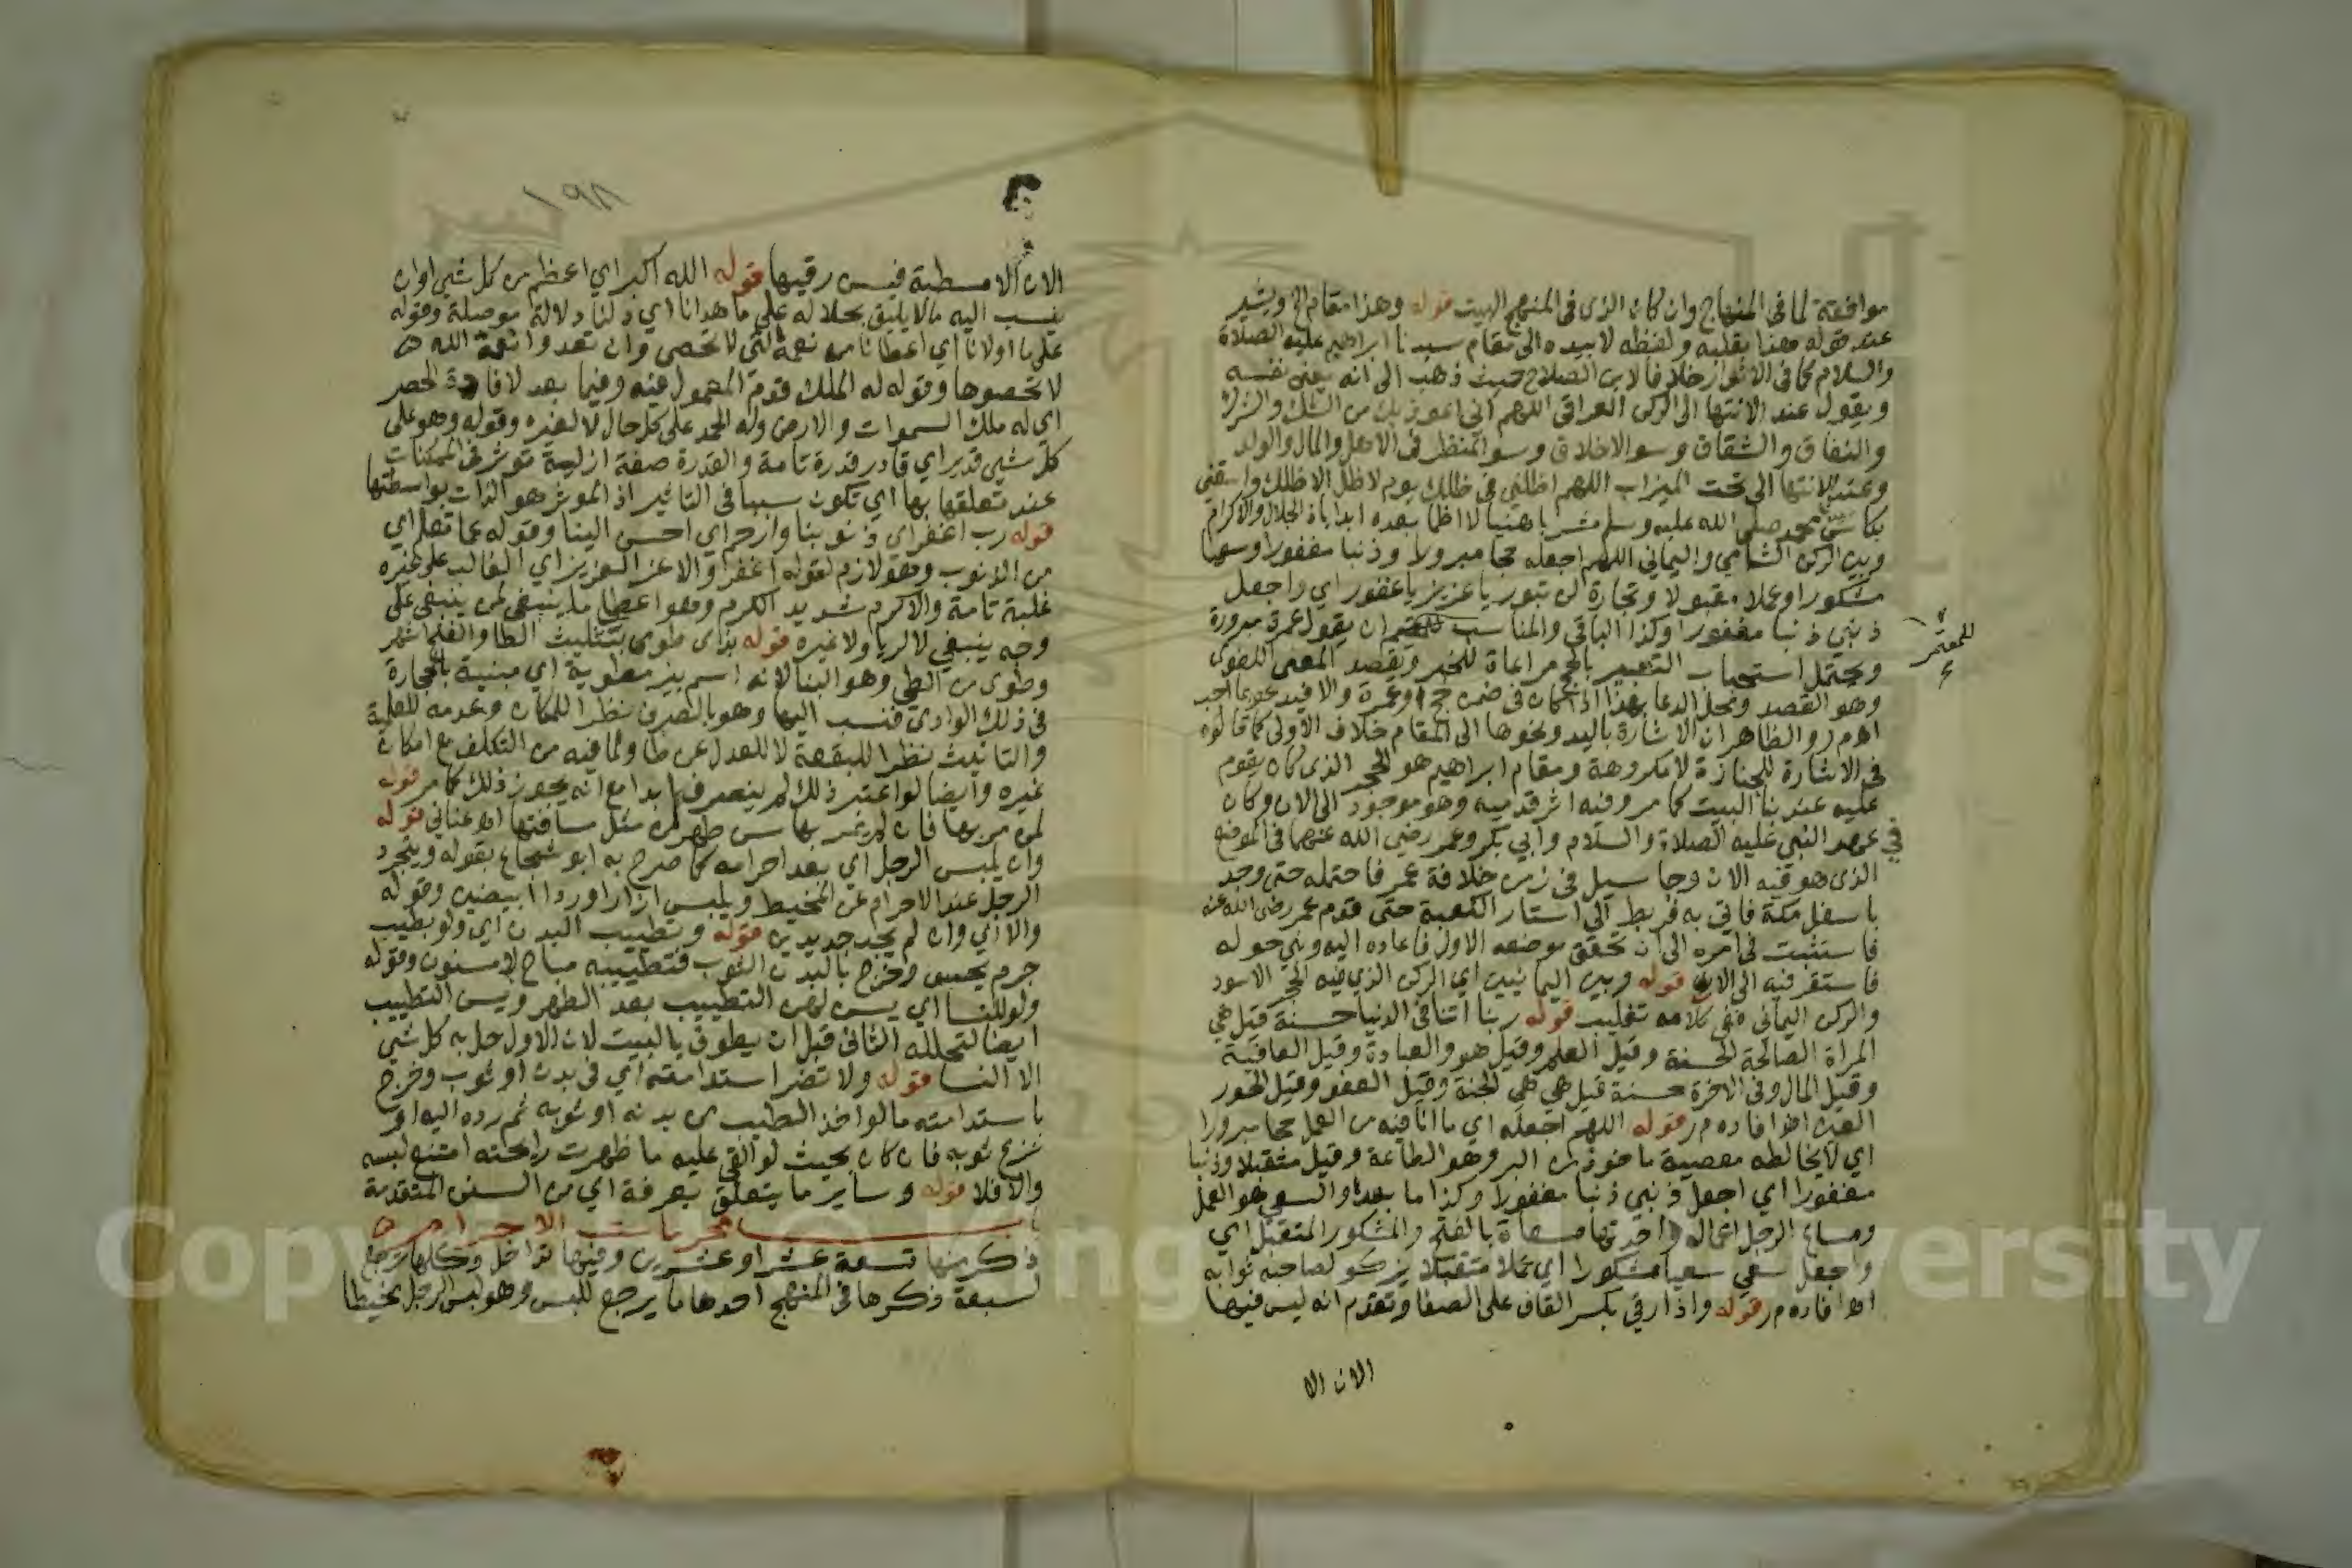 موافقة لما في المنهاج وان كان الذي في المنهج البيت قوله وهذا مقام الخ ويشير
عند قوله هذا بقلبه ولفظه لا بيده الى مقام سيدنا ابراهيم عليه الصلاة
والسلام كما في الانوار خلافا لابن الصلاح حيث ذهب الى انه يعني نفسه
ويقول عند الانتها الى الركن العراقي اللهم اني اعوذ بك من الشك والشرك
والنفاق والشقاق وسو الاخلاق وسو المنظر في الاهل والمال والولد
وعند الانتها الى تحت الميزاب اللهم اظلني في ظلك يوم لا ظل الا ظلك واسقني
بكاس محمد صلى الله عليه وسلم شرابا هنيا لا اظما بعده ابدا ياذا الجلال والاكرام
وبين الركن الشامي واليماني اللهم اجعله حجا مبرورا وذنبا مغفورا وسعيا
مشكورا وعملا مقبولا وتجارة لن تبور يا عزيز يا غفور اي واجعل
ذنبي ذنبا مغفورا وكذا الباقي والمناسب ان يقول عمرة مبرورة
للمعتمر
ويحتمل استحباب التعبير بالحج مراعاة للخبر ويقصد المعنى اللغوي
وهو القصد ومحل الدعا بهذا اذا كان في ضمن حج او عمرة والا فيدعو بما احب
اه م ر والظاهر ان الاشارة باليد ونحوها الى المقام خلاف الاولى كما قالوه
في الاشارة للجنازة لا مكروهة ومقام ابراهيم هو الحجر الذي كان يقوم
عليه عند بنا البيت كما مر وفيه اثر قدميه وهو موجود الى الان وكان
في عهد النبي عليه الصلاة والسلام وابي بكر وعمر رضي الله عنهما في الموضع
الذي هو فيه الان وجا سيل في زمن خلافة عمر فاحتمله حتى وجد
باسفل مكة فاتي به فربط الى استار الكعبة حتى قدم عمر رضي الله عنه
فاستثبت في امره الى ان تحقق موضعه الاول فاعاده اليه وبني حوله
فاستقر فيه الى الان قوله وبين اليمانيين اي الركن الذي فيه الحجر الاسود
والركن اليماني ففي كلامه تغليب قوله ربنا اتنا في الدنيا حسنة قيل هي
المراة الصالحة الحسنة وقيل العلم وقيل هو والعبادة وقيل العافية
وقيل المال وفي الاخرة حسنة قيل هي الجنة وقيل العفو وقيل الحور
العين اه افاده م ر قوله اللهم اجعله اي ما انا فيه من العمل حجا مبرورا
اي لا يخالطه معصية ماخوذ من البر وهو الطاعة وقيل متقبلا وذنبا
مغفورا اي اجعل ذنبي ذنبا مغفورا وكذا ما بعده والسعي هو العمل
ومساعي الرجل اعماله واحدتها مسعاة بالفتح والمشكور المتقبل اي
واجعل سعي سعيا مشكورا اي عملا متقبلا يزكو لصاحبه ثوابه
اه افاده م ر قوله واذا رقي بكسر القاف على الصفا وتقدم انه ليس فيها
الان الا
١٩٨
الان الا مسطبة فيسن رقيها قوله الله اكبر اي اعظم من كل شي او ان
ينسب اليه ما لا يليق بجلاله على ما هدانا اي دلنا دلالة موصلة وقوله
على ما اولانا اي اعطانا من نعمه التي لا تحصى وان تعدوا نعمة الله
لا تحصوها وقوله له الملك قدم المعمول فيه وفيما بعد لافادة الحصر
اي له ملك السموات والارض وله الحمد على كل حال لا لغيره وقوله وهو على
كل شي قدير اي قادر قدرة تامة والقدرة صفة ازلية توثر في الممكنات
عند تعلقها بها اي تكون سببا في التاثير اذ الموثر هو الذات بواسطتها
قوله رب اغفر اي ذنوبنا وارحم اي احسن الينا وقوله عما تعلم اي
من الذنوب وهو لازم لقوله اغفر والاعز العزيز اي الغالب على غيره
غلبة تامة والاكرم شديد الكرم وهو اعطا ما ينبغي لمن ينبغي على
وجه ينبغي لا لريا ولا غيره قوله بذي طوى بتثليث الطا والفتح اشهر
وطوى من الطي وهو البنا لانه اسم بير مطوية اي مبنية بالحجارة
في ذلك الوادي فنسب اليها وهو بالصرف نظرا للمكان وعدمه للعلمية
والتانيث نظرا للبقعة لا للعدل عن طا ولما فيه من التكلف مع امكان
غيره وايضا لو اعتبر ذلك لم ينصرف ابدا مع انه يجوز ذلك كما مر قوله
لمن مر بها فان لم يمر بها سن طهره من مثل مسافتها اه عناني قوله
وان يلبس الرجل اي بعد احرامه كما صرح به ابو شجاع بقوله ويتجرد
الرجل عند الاحرام عن المخيط ويلبس ازارا وردا ابيضين وقوله
والا اي وان لم يجد جديدين قوله وتطييب البدن اي ولو بطيب
جرم يحسن وخرج بالبدن الثوب فتطييبه مباح لا مسنون وقوله
ولو للنسا اي يسن لهن التطييب بعد الطهر ويسن التطييب
ايضا لتحلله الثاني قبل ان يطوف بالبيت لان الاول حل به كل شي
الا النسا قوله ولا تضر استدامته اي في بدن او ثوب وخرج
باستدامته ما لو اخذ الطيب من بدنه او ثوبه ثم رده اليه او
نزع ثوبه فان كان بحيث لو القي عليه ما ظهرت رايحته امتنع لبسه
والا فلا قوله وساير ما يتعلق بعرفة اي من السنن المتقدمة
باب محرمات الاحرام
ذكر منها تسعة عشر او عشرين وفيها تداخل وكلها ترجع
لسبعة ذكرها في المنهج احدها ما يرجع للبس وهو لبس الرجل مخيطا
Copyright © King University